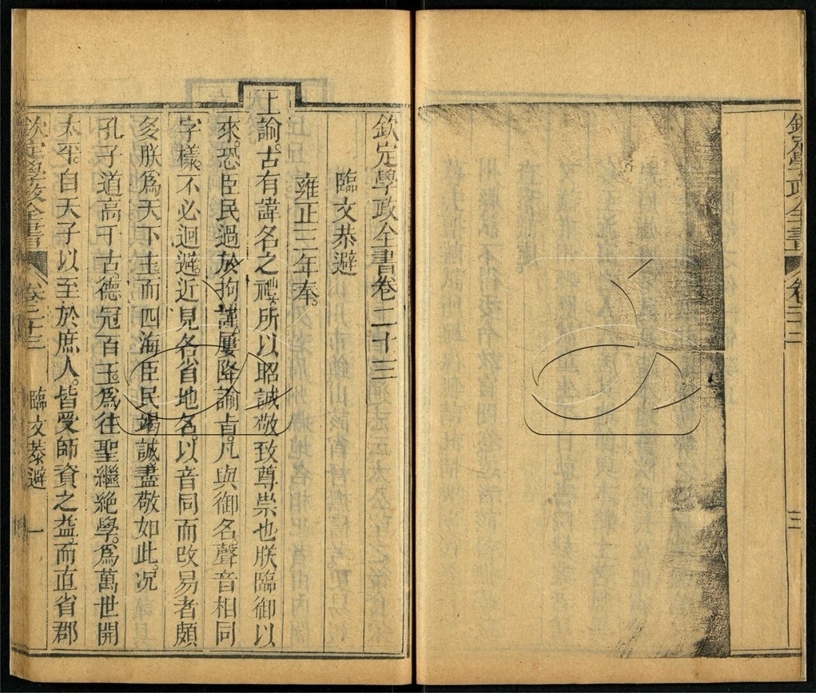 欽定學政全書 卷二十二 三
欽定學政全書卷二十三
臨文恭避
雍正三年奉。
上諭。古有諱名之禮。所以昭誠敬致尊崇也朕臨御以
來。恐臣民過於拘謹。屢降諭旨。凡與御名聲音相同
字樣。不必迴避。近見各省地名。以音同而改易者頗
多。朕爲天下主。而四海臣民竭誠盡敬如此。況
孔子道高千古。德冠百王。爲往聖繼絶學。爲萬世開
太平。自天子以至於庶人。皆受師資之益。而直省郡
欽定學政全書 卷二十三 臨文恭避 一